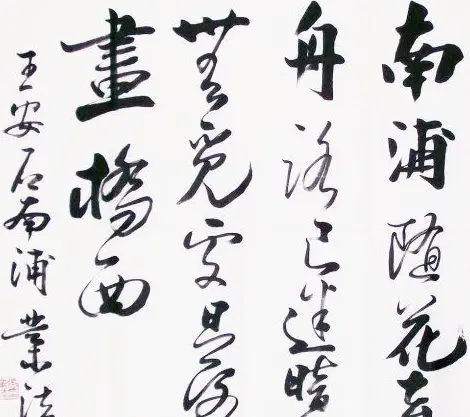 南浦隨花去
舟路已迷暗
無覓處日落
畫橋西
王安石南浦業